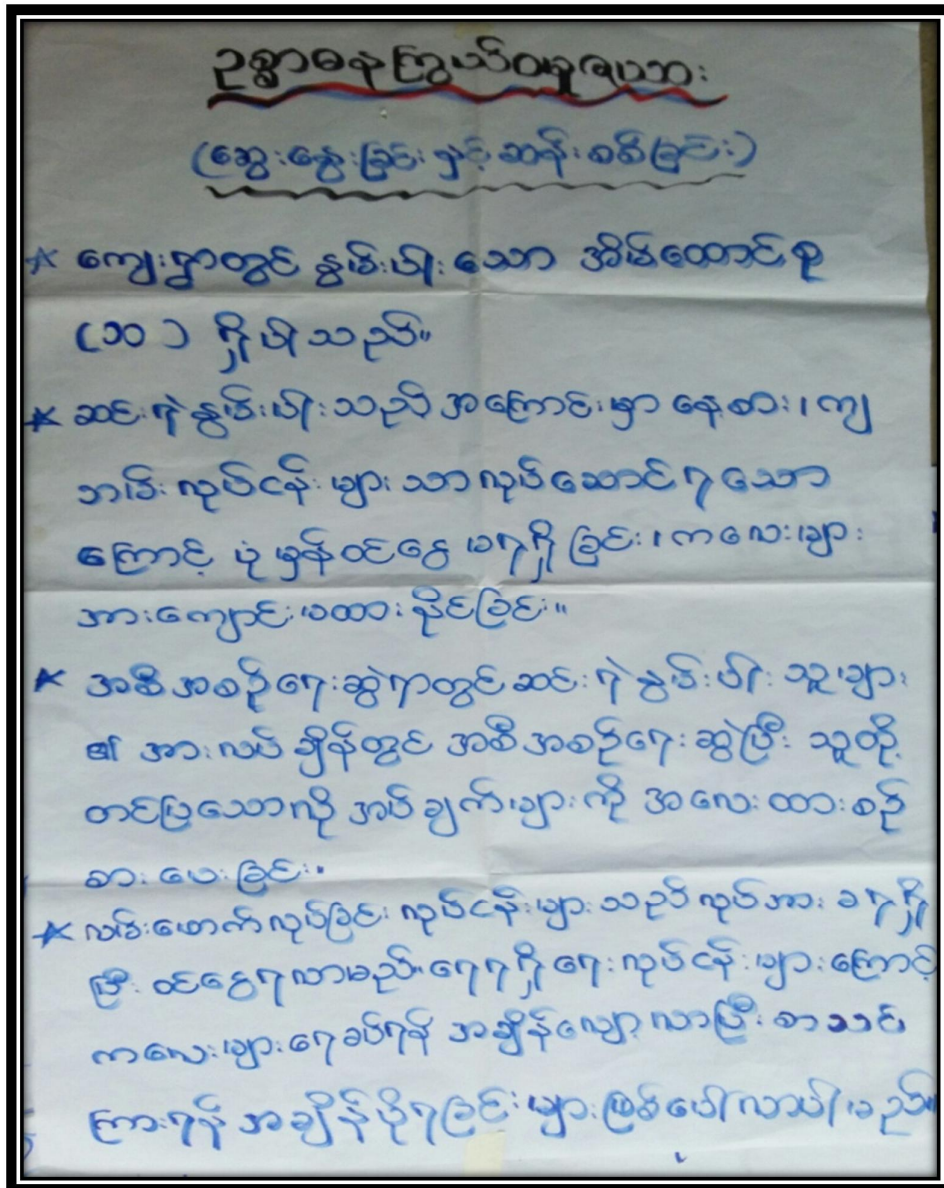 ဥစ္စာဓနကြွယ်ဝမှုဇယား
(ဆွေးနွေးခြင်းနှင့်ဆန်းစစ်ခြင်း)
* ကျေးရွာတွင် နွမ်းပါးသော အိမ်ထောင်စု
(၁၀) ရှိပါသည်။
* ဆင်းရဲနွမ်းပါးသည့်အကြောင်းမှာ နေ့စား၊ ကျ
ဘမ်းလုပ်ငန်းများသာလုပ်ဆောင်ရသော
ကြောင့် ပုံမှန်ဝင်ငွေ မရရှိခြင်း၊ ကလေးများ
အားကျောင်းမထားနိုင်ခြင်း။
* အစီအစဉ်ရေးဆွဲရာတွင်ဆင်းရဲနွမ်းပါးသူများ
၏ အားလပ်ချိန်တွင် အစီအစဉ်ရေးဆွဲပြီး သူတို့
တင်ပြသောလိုအပ်ချက်များကို အလေးထားစဉ်
စားပေးခြင်း။
* လမ်းဖောက်လုပ်ခြင်းလုပ်ငန်းများသည်လုပ်အားခရရှိ
ပြီး ဝင်ငွေရလာမည်။ ရေရရှိရေးလုပ်ငန်းများကြောင့်
ကလေးများရေခပ်ရန် အချိန်လျော့လာပြီး စာသင်
ကြားရန်အချိန်ပိုရခြင်းများဖြစ်ပေါ်လာပါမည်။